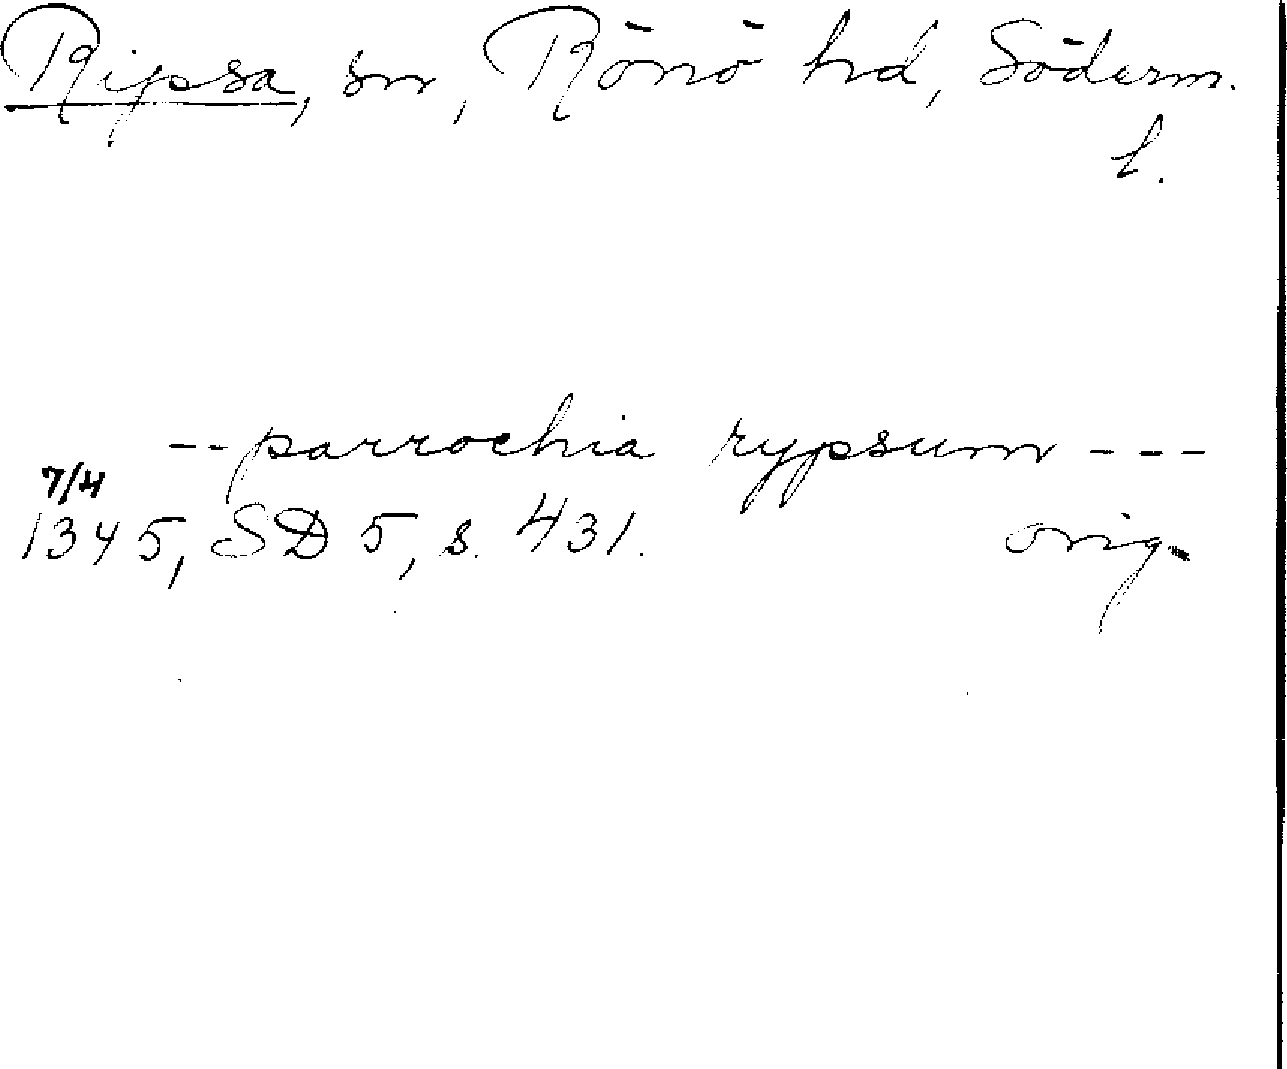 Ripsa, sn, Rönö hd, Söderm.
l.
-- parrochia rypsum ---
7/4
1345, SD 5, s. 431. orig.